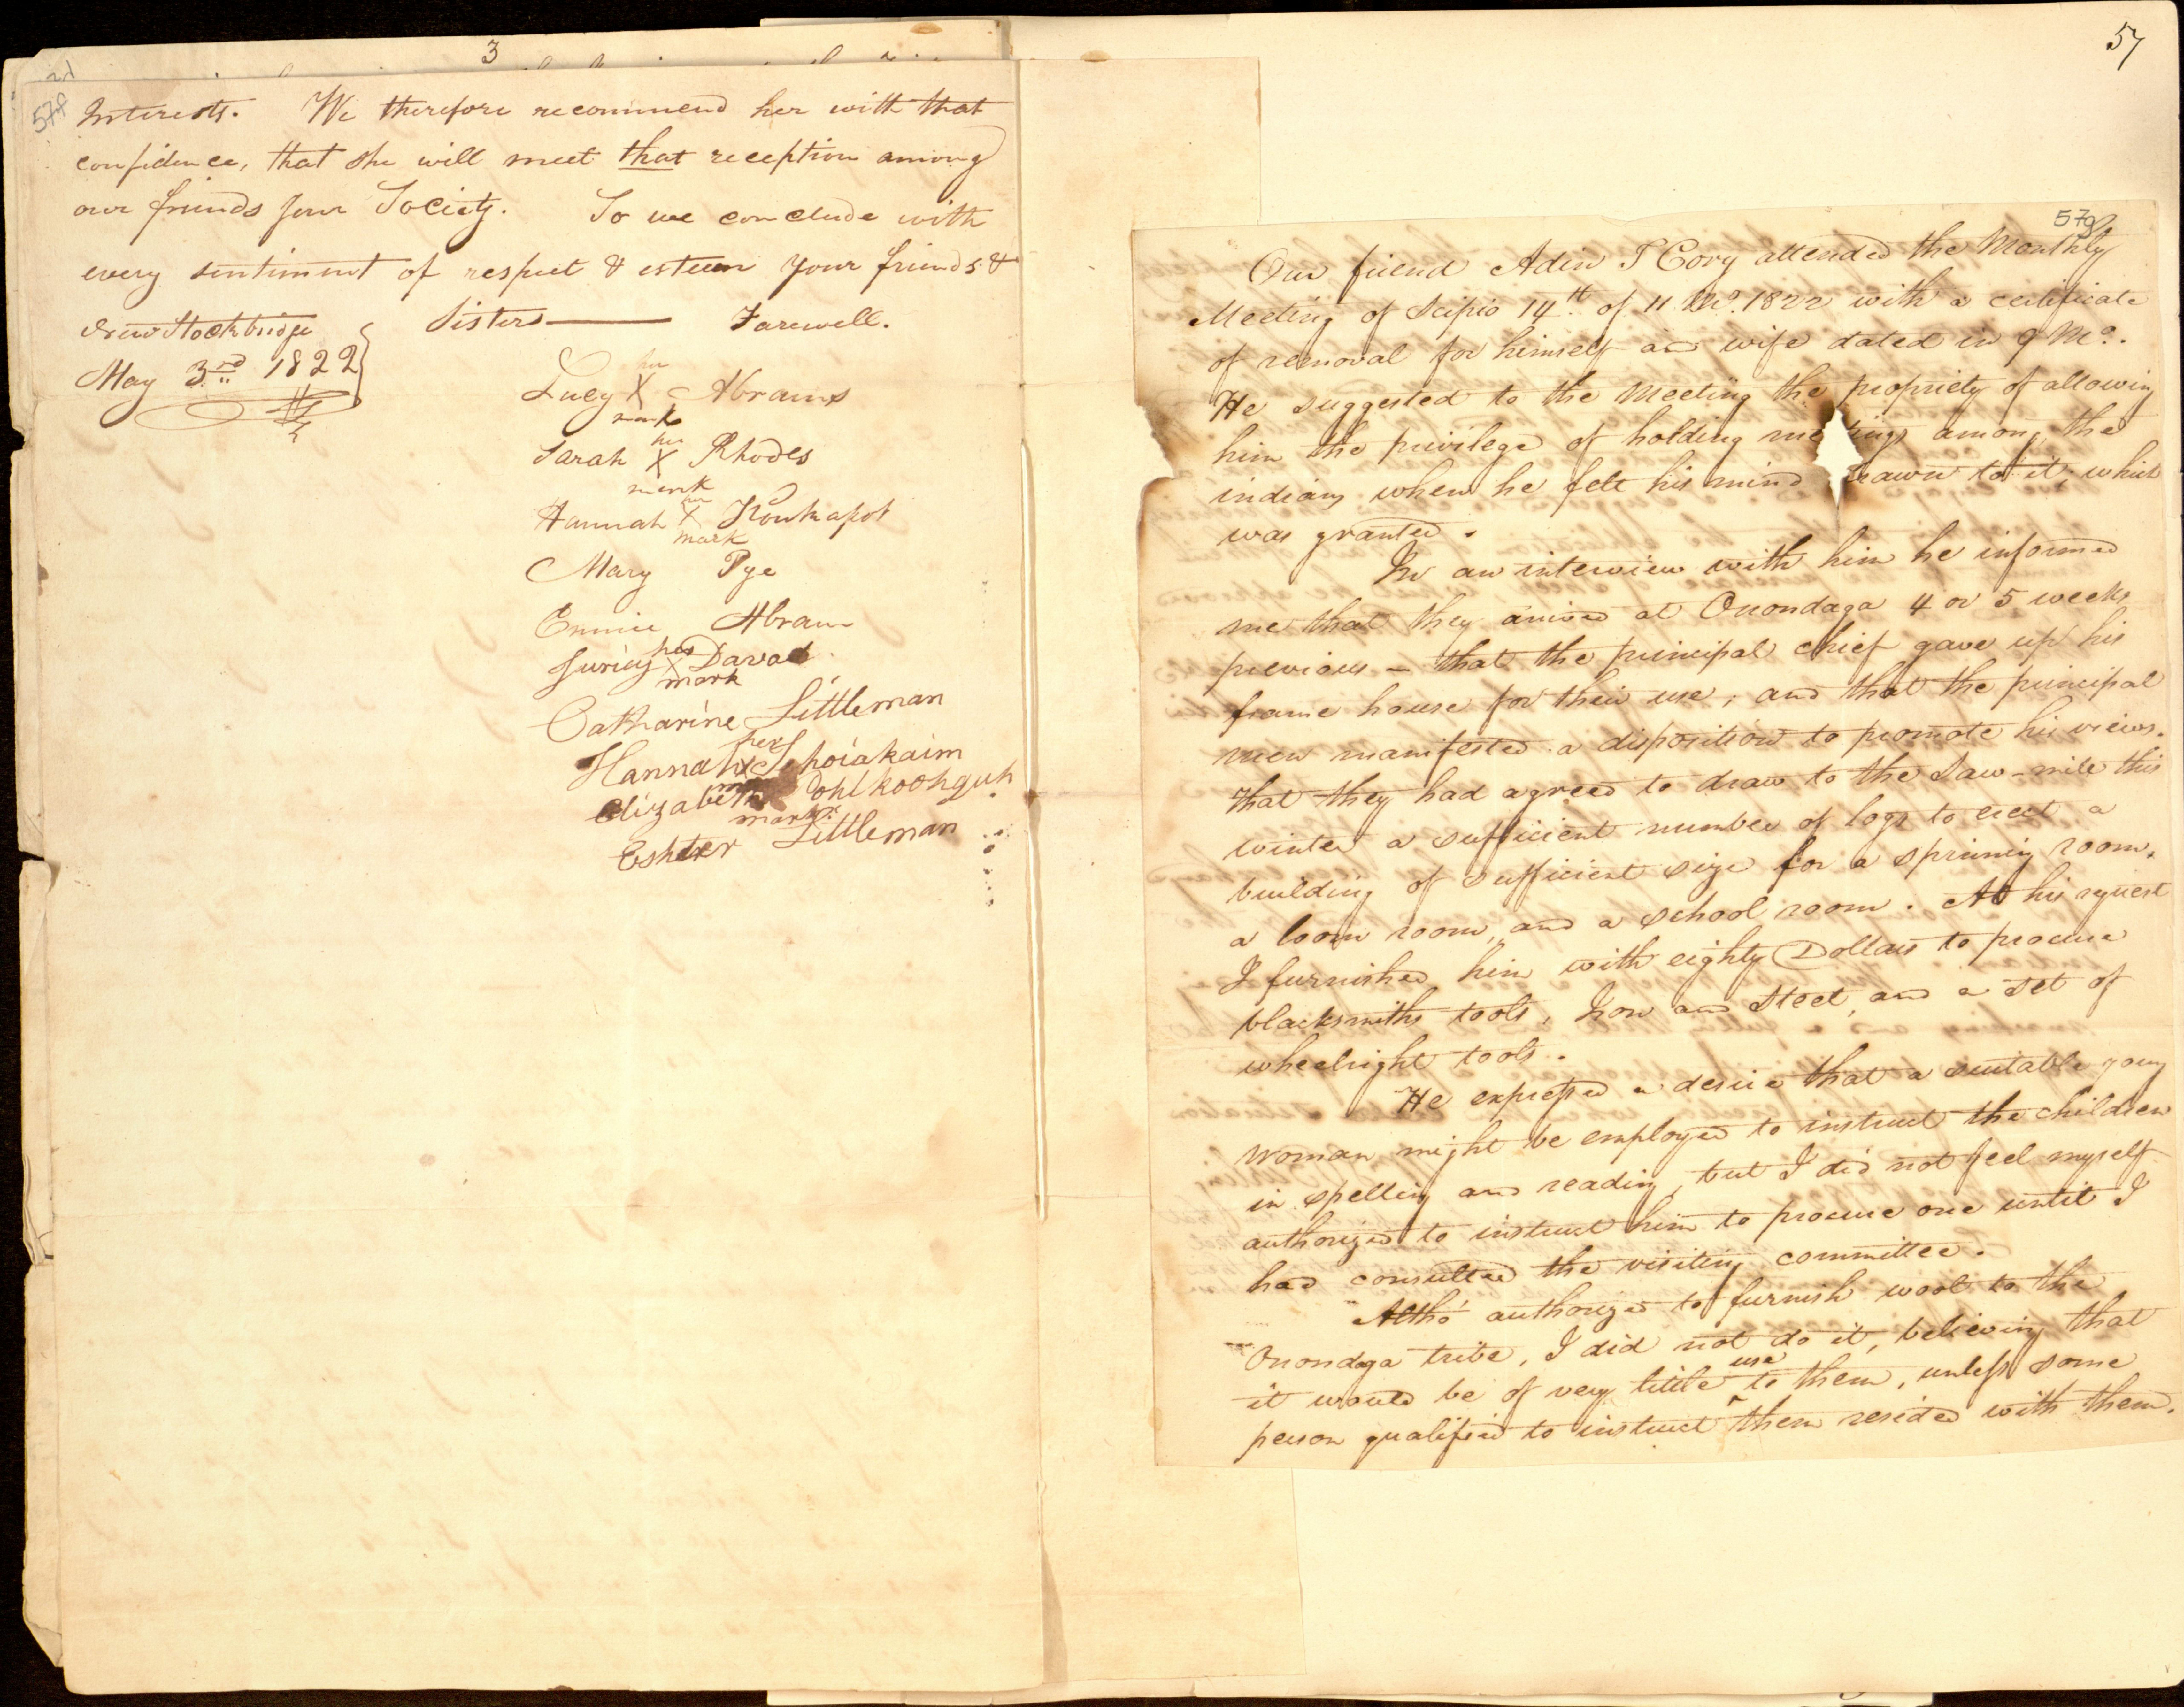 3
57f
Interests. We therefore recommend her with that
confidence, that she will meet that reception among
our friends your Society. So we conclude with
every sentiment of respect & esteem your friends &
Sisters—— Farewell.
New Stockbridge
May 3rd 1822
Lucy her X mark Abrams
Sarah her X mark Rhodes
Hannah her X mark Konkapot
Mary Pye
Eunice Abram
Jurie her X mark Davad
Catharine Littleman
Hannah her X Jehoiakaim
Elizabeth mark Pohlkoohquh
Eshter Littleman
57
57g
Our friend Adin T Cory attended the Monthly
Meeting of Scipio 14th. of 11 Mo. 1822 with a certificate
of removal for himself and wife dated in 9 Mo.
He suggested to the Meeting the propriety of allowing
him the privilege of holding meetings among the
indians when he felt his mind drawn to it, which
was granted.
In an interview with him he informed
me that they arrived at Onondaga 4 or 5 weeks
previous – that the principal chief gave up his
frame house for their use; and that the principal
men manifested a disposition to promote his views.
that they had agreed to draw to the Saw-mill this
winter a sufficient number of logs to erect a
building of sufficient size for a spinning room,
a loom room, and a school room. At his request
I furnished him with eighty Dollars to procure
blacksmiths tools, Iron and Steel, and a set of
wheelright tools.
He expressed a desire that a suitable young
woman might be employed to instruct the children
in spelling and reading, but I did not feel myself
authorized to instruct him to procure one until I
had consulted the visiting committee.
Altho' authorized to furnish wool to the
Onondaga tribe, I did not do it, believing that
it would be of very little use to them, unless some
person qualified to instruct them resided with them.